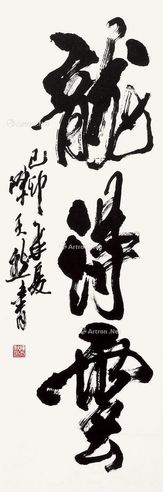 龍得雲
己卯年夏
陳天然書
Artron.Net